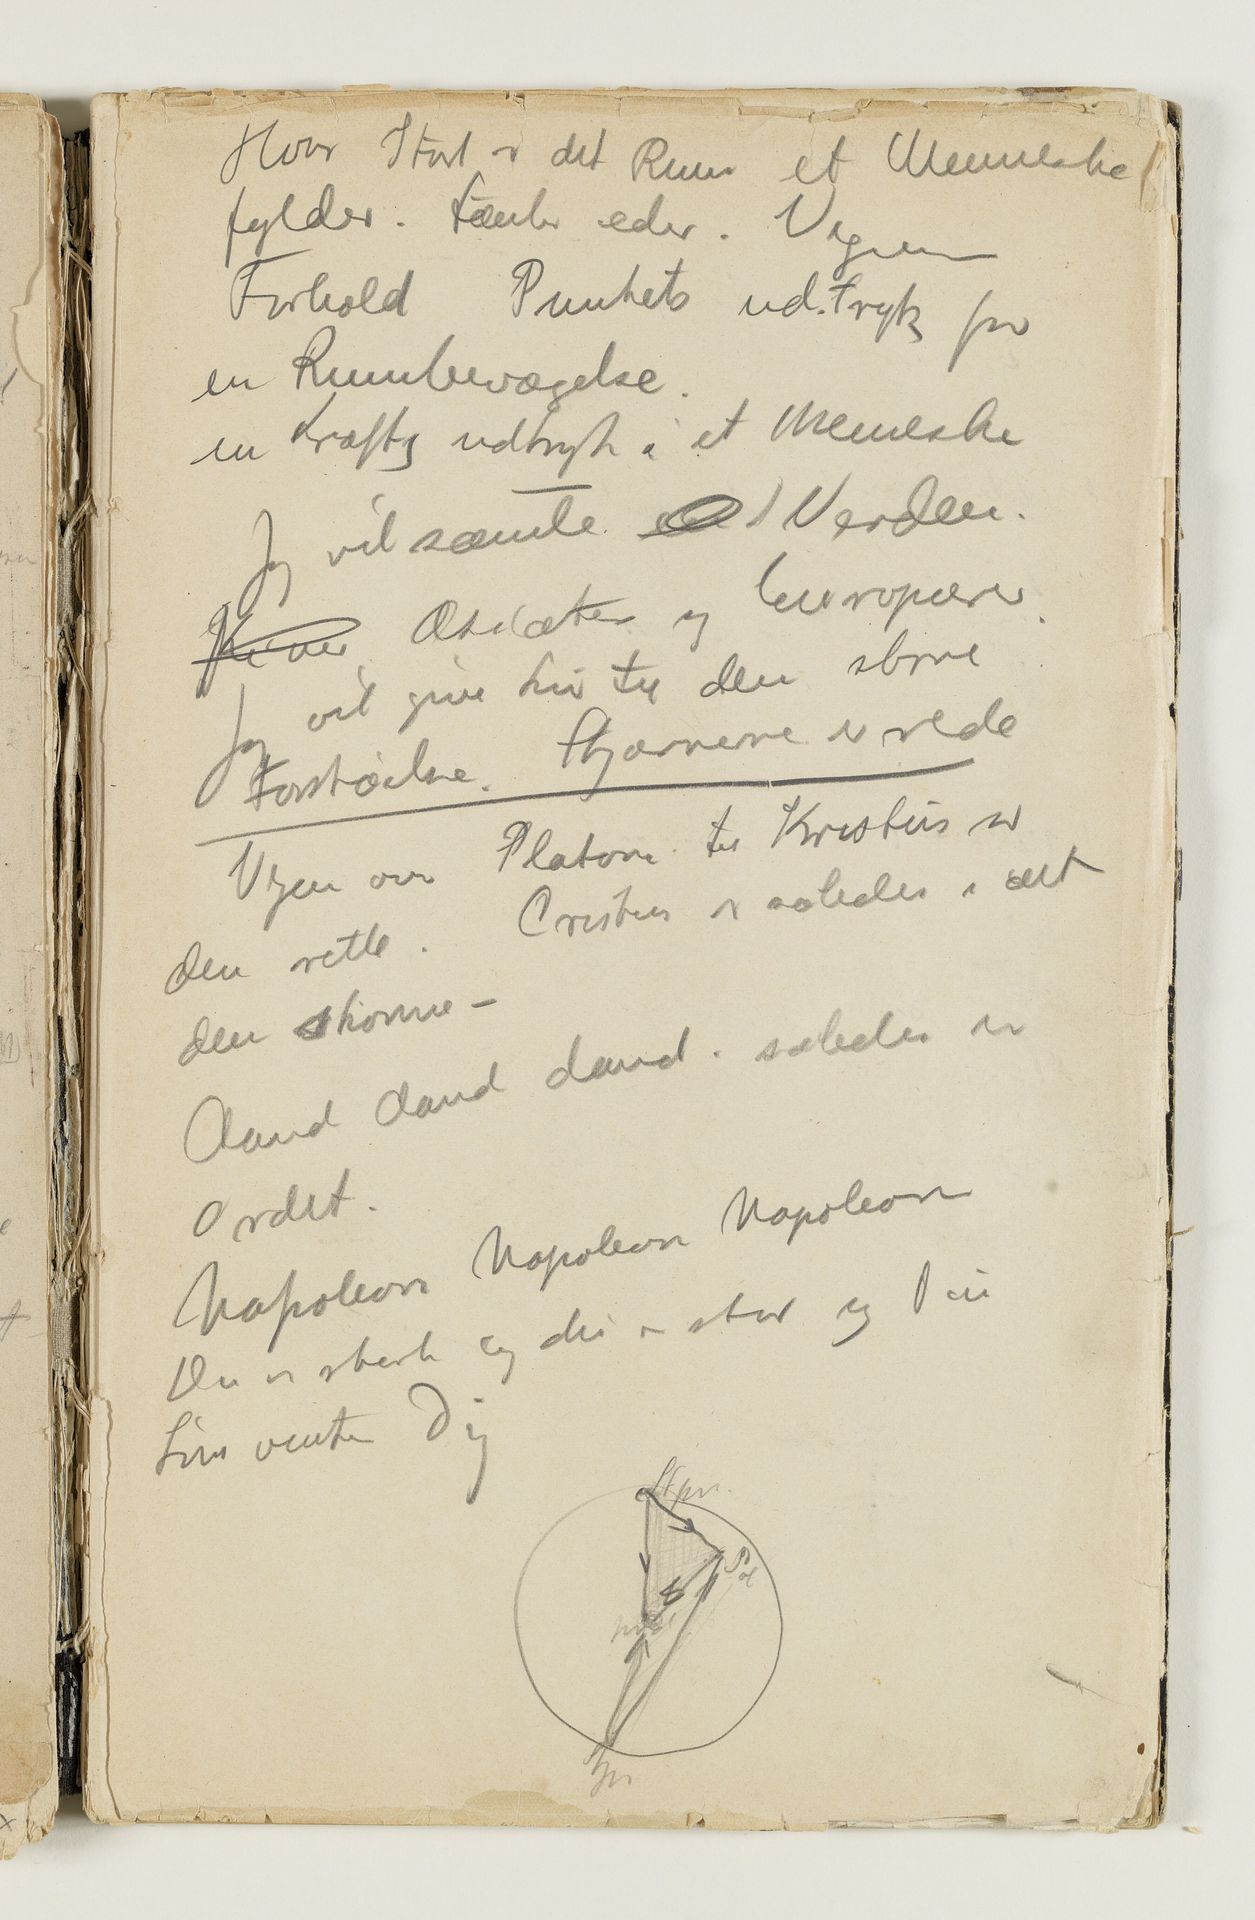 Hvor Stort er det Rum et Menneske
fylder. tænk eder. Vegnen
Forhold Punkets ud.tryk for
en Rumbevægelse.
en kræftig udtryk i et Meneske
Jeg vil samle Verden.
Asiater og Europærer.
Jeg vil give Liv til den store
Forståelse. Stjernerne er rede
Vejen over Platon til Kristus er
den rette. Cristus er således i alt
den skønne –
Aand Aand Aand. således er
Ordet.
Napoleon Napoleon Napoleon
Du er sterk og du er stor og Din
Live venter Dig